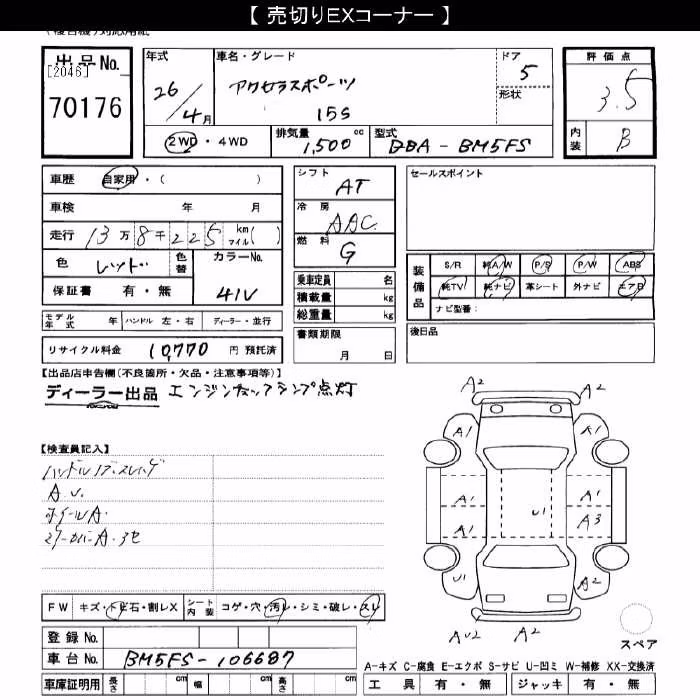 【 売切りEXコーナー 】
出品No.
[2046]
70176
年式
26/4月
車名・グレード
アクセラスポーツ
15S
ドア
5
形状
評価点
3.5
内装
B
2WD・4WD
排気量
1,500 cc
型式
DBA-BM5FS
車歴 自家用・( )
車検 年 月
走行 13万8千225 km マイル( )
色 レッド 色替 カラーNo.
41V
保証書 有・無
モデル年式 年 ハンドル 左・右 ディーラー・並行
リサイクル料金 10,770 円 預託済
シフト
AT
冷房
AAC
燃料
G
乗車定員 名
積載量 kg
総重量 kg
書類期限
月 日
セールスポイント
装備品
S/R 純A/W P/S P/W ABS
純TV 純ナビ 革シート 外ナビ エアB
ナビ型番:
後日品
【出品店申告欄(不良箇所・欠品・注意事項等)】
ディーラー出品 エンジンチェックランプ点灯
【検査員記入】
A.U.
ホイールA.
FW キズ・トビ石・割レX シート内装 コゲ・穴・汚レ・シミ・破レ・スレ
登録No.
車台No. BM5FS-106687
車庫証明用 長さ cm 幅 cm 高さ cm
A2 A2
A1 A1
A1 A1
U1
A1 A3
U1 A2
AU2 A2
スペア
A-キズ C-腐食 E-エクボ S-サビ U-凹ミ W-補修 XX-交換済
工具 有・無 ジャッキ 有・無